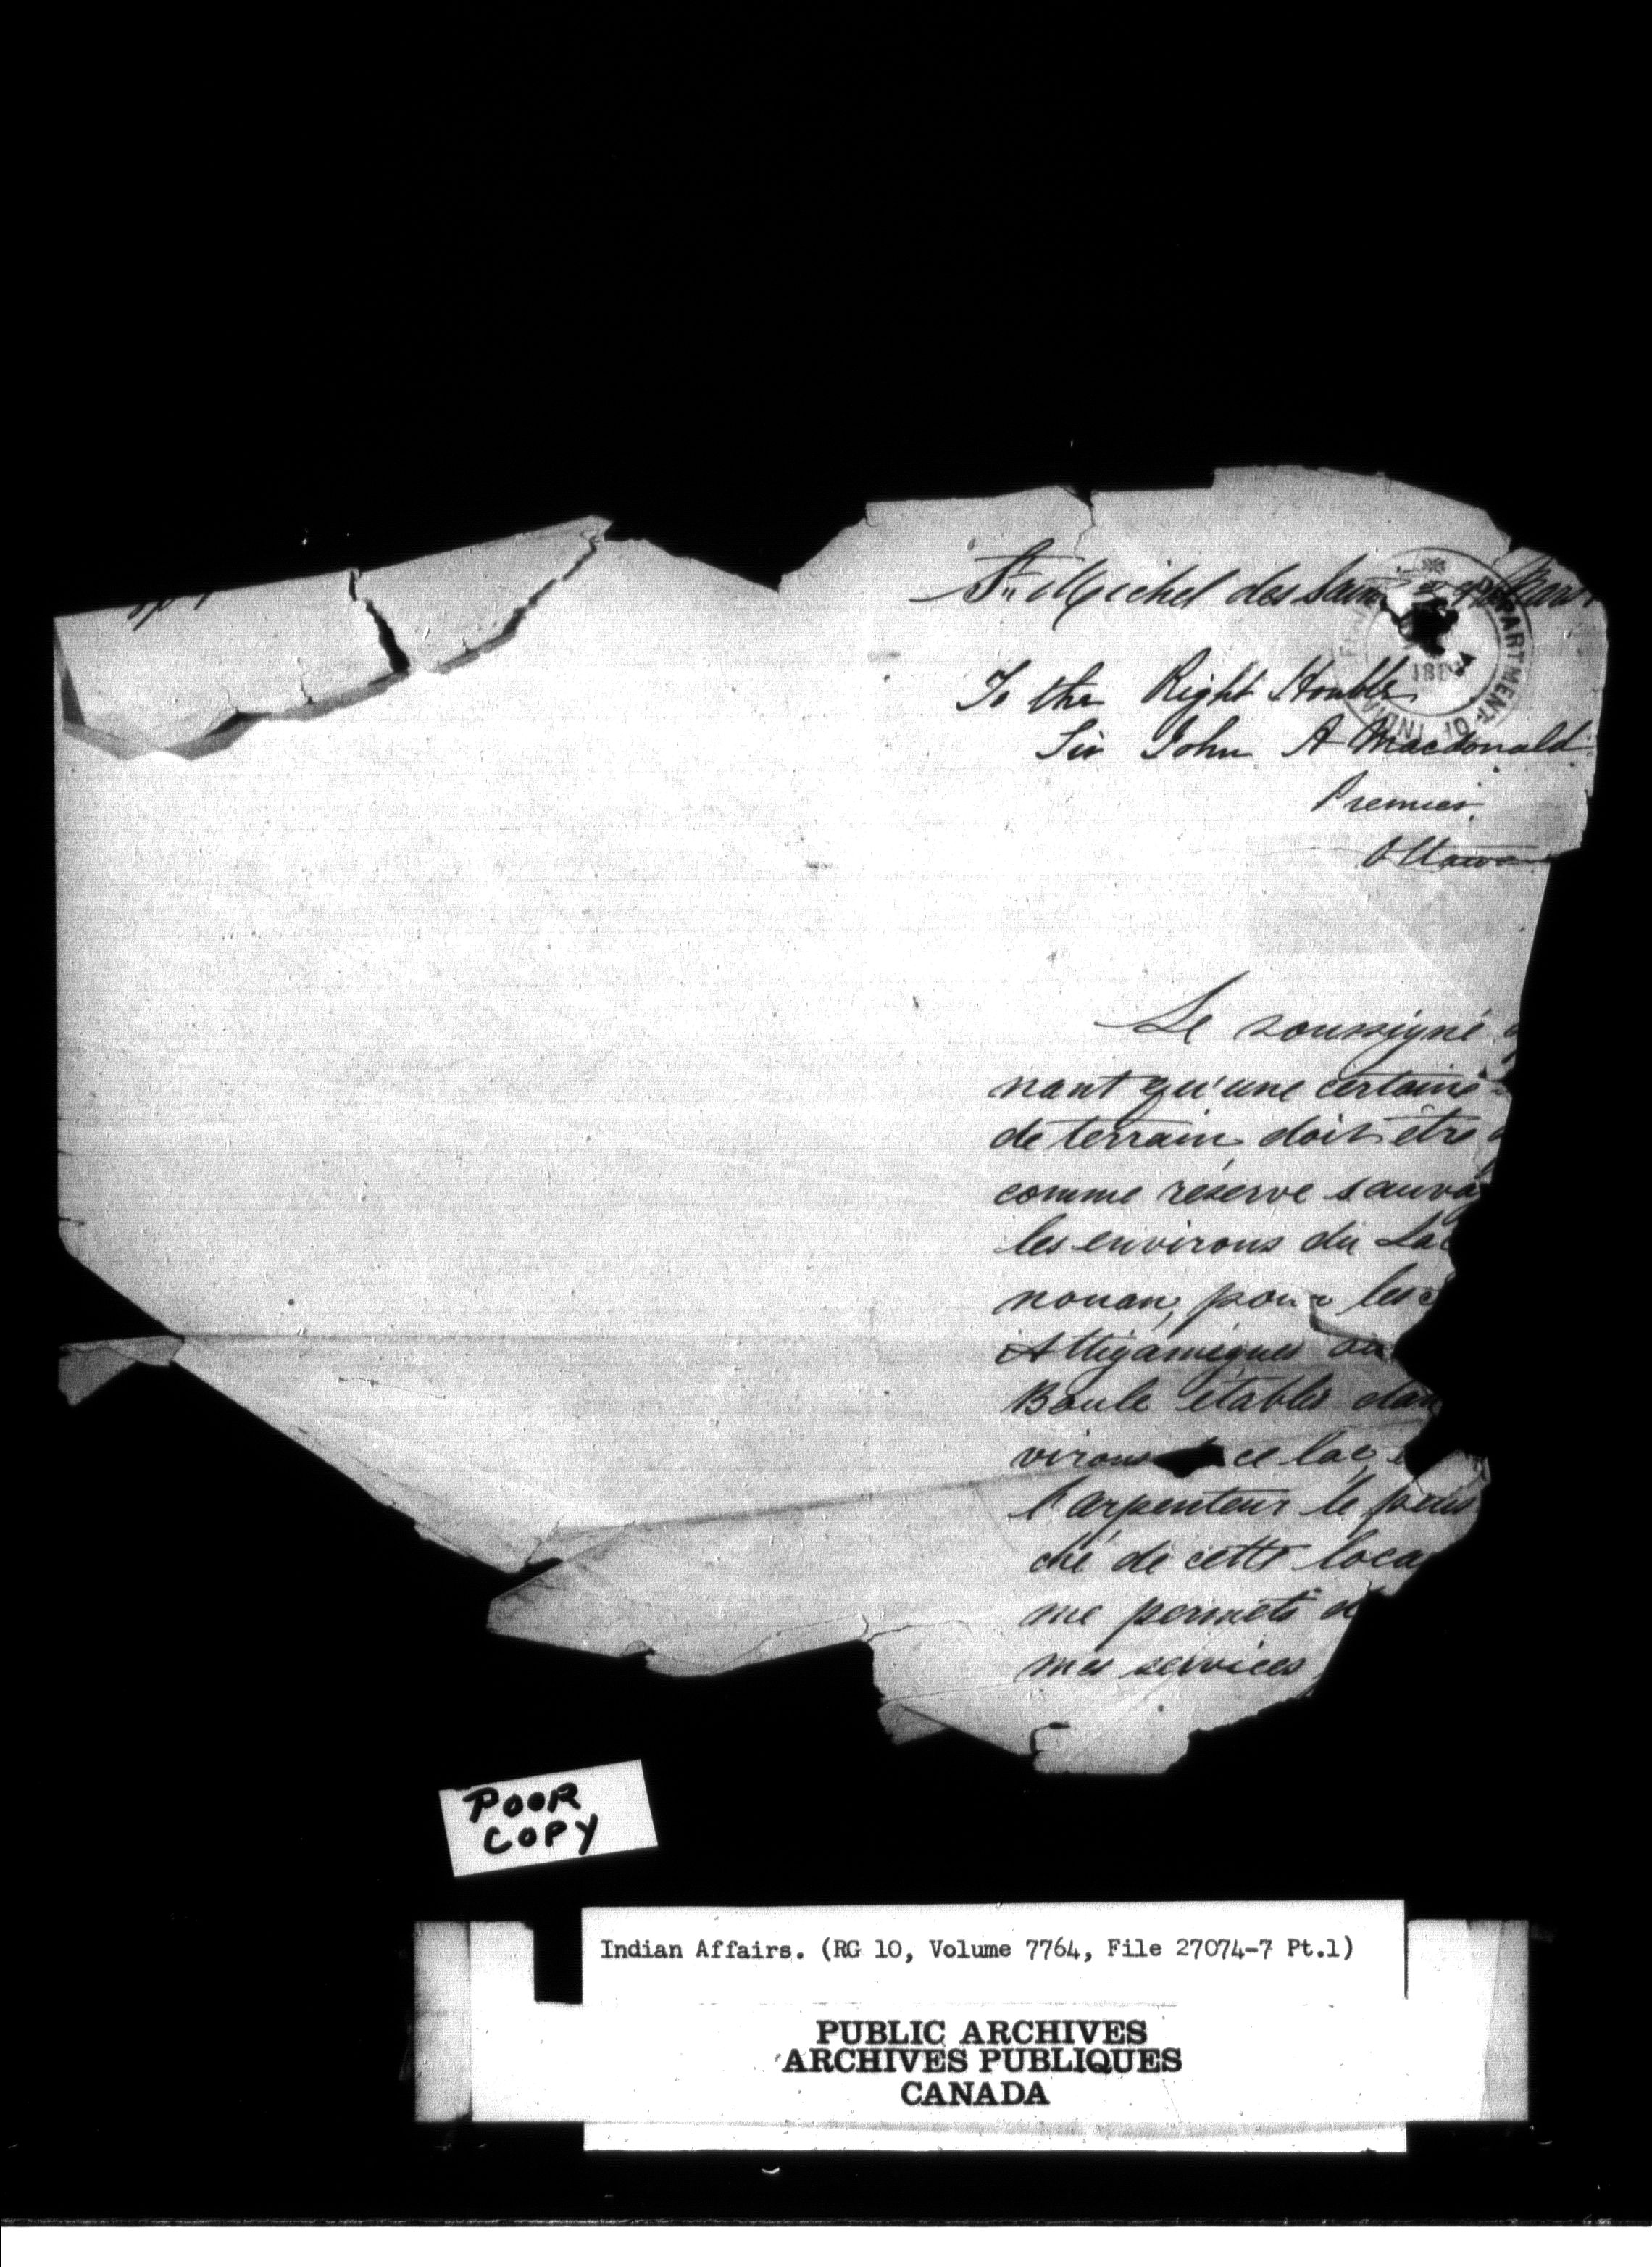 St Michel des Saints
To the Right Honble
Sir John A Macdonald
Premier
Ottawa
DEPARTMENT OF INDIA
18
Le soussigné
nant qu'une certaine
de terrain doit être
comme réserve sauva
les environs du Lac
nouan, pour les
Attigamègues ou
Boule établis dan
virons ce lac,
l'arpenteur le plus
ché de cette loca
me permets d
mes services
POOR
COPY
Indian Affairs. (RG 10, Volume 7764, File 27074-7 Pt.1)
PUBLIC ARCHIVES
ARCHIVES PUBLIQUES
CANADA